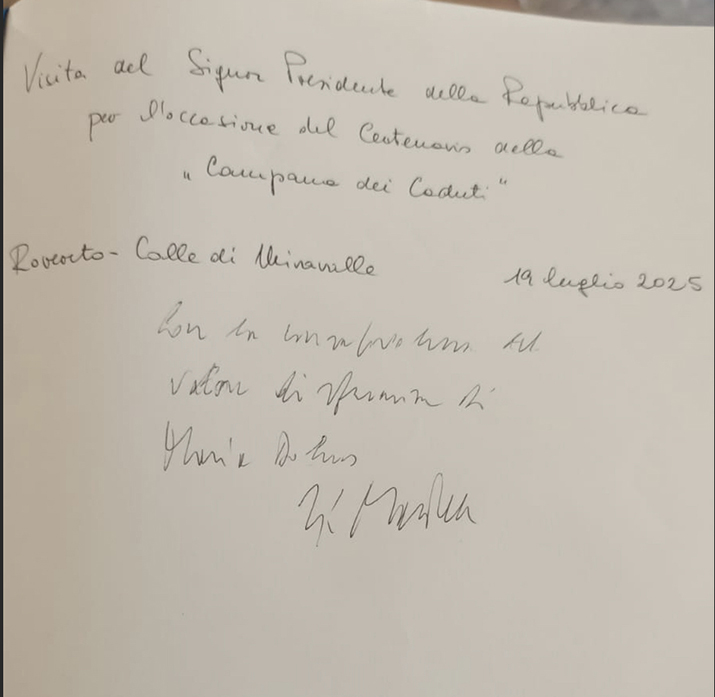 Visita del Signor Presidente della Repubblica
per l'occasione del Centenario della
"Campana dei Caduti"
Rovereto - Colle di Miravalle
19 luglio 2025
Con la consapevolezza del
valore di speranza di
Maria Dolens